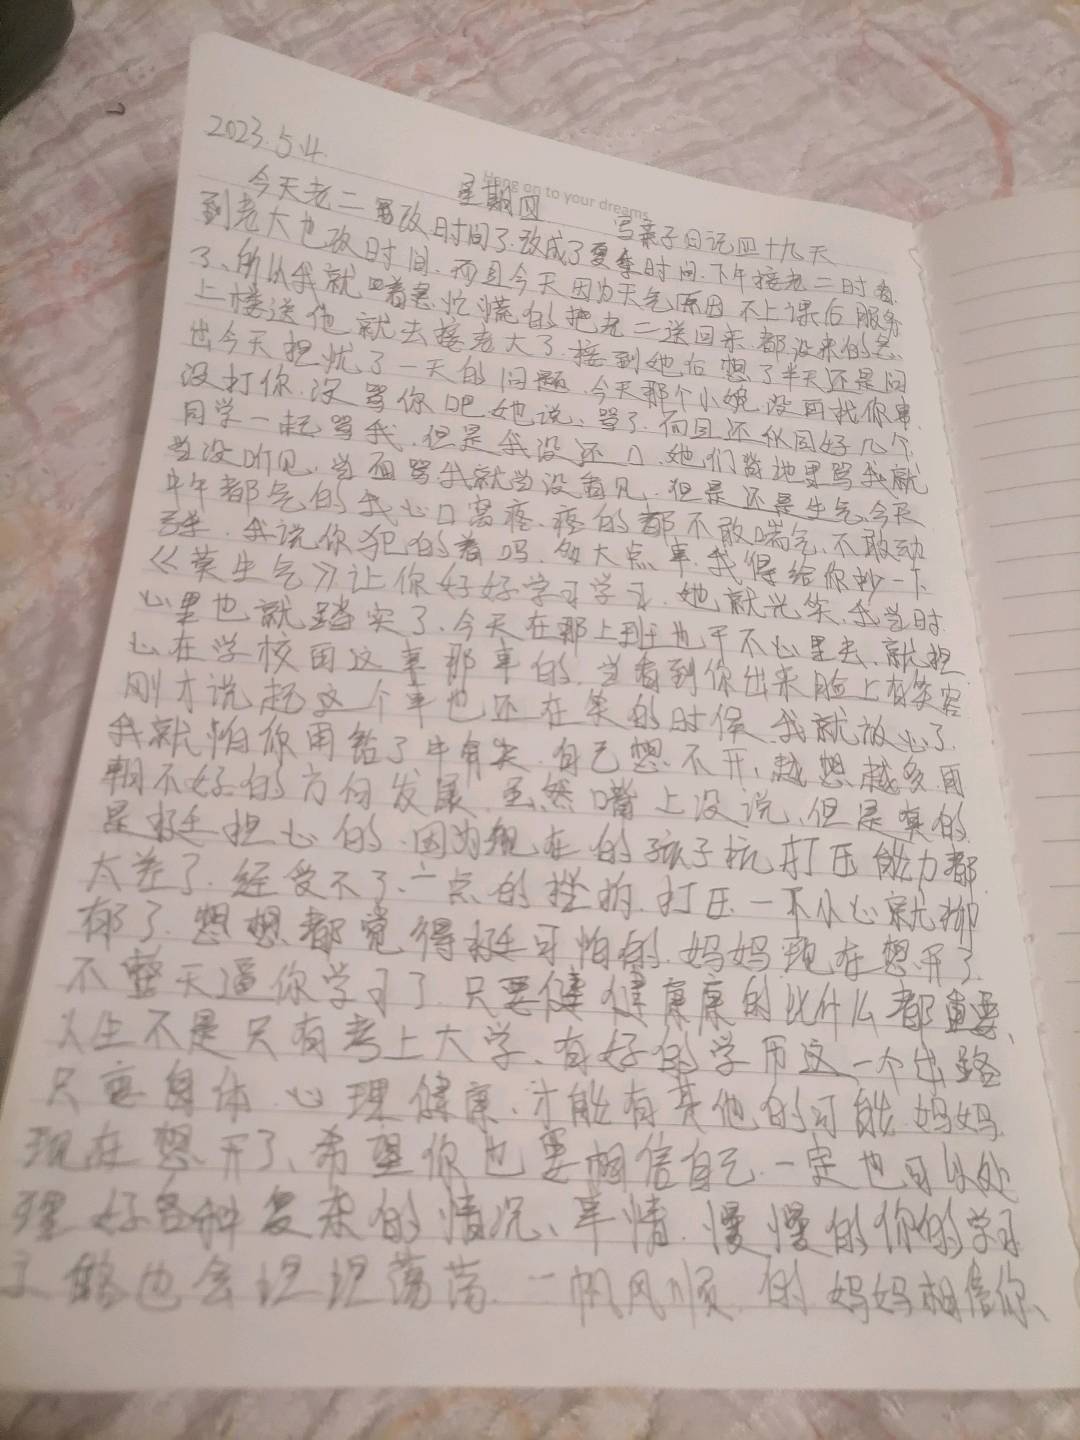 2023.5.4. 星期四 写亲子日记四十九天
Hang on to your dreams
今天老二更改时间了.改成了夏季时间.下午接老二时看
到老大也改时间.而且今天因为天气原因不上课后服务
了、所以我就着急忙慌的把老二送回来.都没来的急
上楼送他就去接老大了.接到她后想了半天还是问
出今天担忧了一天的问题.今天那个小婉没再找你事.
没打你.没骂你吧.她说、骂了.而且还伙同好几个
同学一起骂我.但是我没还口.她们背地里骂我就
当没听见、当面骂我就当没看见.但是还是生气.今天
中午都气的我心口窝疼.疼的都不敢喘气、不敢动
弹.我说你犯的着吗.多大点事.我得给你抄一下
《莫生气》让你好好学习学习.她就光笑.我当时
心里也就踏实了.今天在那上班也干不心里去.就担
心在学校因这事那事的.当看到你出来脸上有笑容
刚才说起这个事也还在笑的时候.我就放心了.
我就怕你因给了 自己想不开、越想越多.再
朝不好的方向发展.虽然嘴上没说、但是真的
是挺担心的.因为现在的孩子抗打压能力都
太差了.经受不了、一点的挫折.打压.一不小心就抑
郁了.想想都觉得挺可怕的.妈妈现在想开了.
不整天逼你学习了.只要健健康康的比什么都重要、
人生不是只有考上大学、有好的学历这一个出路
只要身体.心理健康、才能有其他的可能.妈妈
现在想开了、希望你也要相信自己.一定也可以处
理好各种复杂的情况、事情.慢慢的你的学习
了 路也会坦坦荡荡.一帆风顺.的.妈妈相信你、